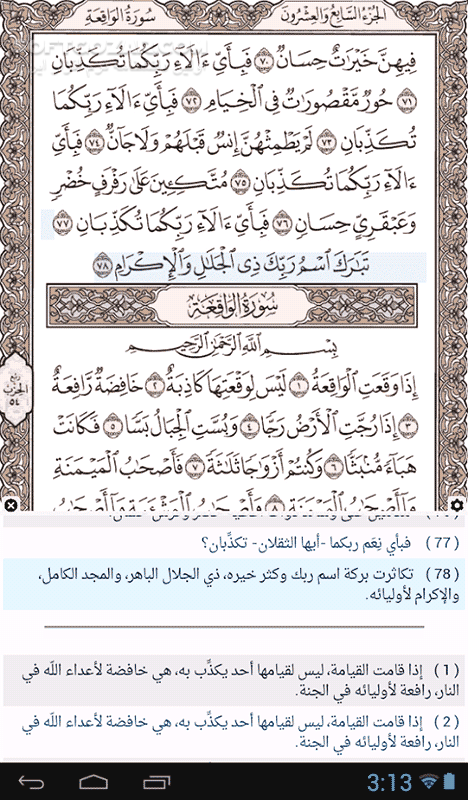 الجزء السابع والعشرون
سورة الواقعة
فِيهِنَّ خَيْرَٰتٌ حِسَانٌ ٧٠ فَبِأَيِّ ءَالَآءِ رَبِّكُمَا تُكَذِّبَانِ
٧١ حُورٌ مَّقْصُورَٰتٌ فِي ٱلْخِيَامِ ٧٢ فَبِأَيِّ ءَالَآءِ رَبِّكُمَا
تُكَذِّبَانِ ٧٣ لَمْ يَطْمِثْهُنَّ إِنسٌ قَبْلَهُمْ وَلَا جَآنٌّ ٧٤ فَبِأَيِّ
ءَالَآءِ رَبِّكُمَا تُكَذِّبَانِ ٧٥ مُتَّكِـِٔينَ عَلَىٰ رَفْرَفٍ خُضْرٍ
وَعَبْقَرِيٍّ حِسَانٍ ٧٦ فَبِأَيِّ ءَالَآءِ رَبِّكُمَا تُكَذِّبَانِ ٧٧
تَبَٰرَكَ ٱسْمُ رَبِّكَ ذِي ٱلْجَلَٰلِ وَٱلْإِكْرَامِ ٧٨
سُورَةُ الوَاقِعَةِ
بِسْمِ ٱللَّهِ ٱلرَّحْمَٰنِ ٱلرَّحِيمِ
إِذَا وَقَعَتِ ٱلْوَاقِعَةُ ١ لَيْسَ لِوَقْعَتِهَا كَاذِبَةٌ ٢ خَافِضَةٌ رَّافِعَةٌ
٣ إِذَا رُجَّتِ ٱلْأَرْضُ رَجًّا ٤ وَبُسَّتِ ٱلْجِبَالُ بَسًّا ٥ فَكَانَتْ
هَبَآءً مُّنۢبَثًّا ٦ وَكُنتُمْ أَزْوَٰجًا ثَلَٰثَةً ٧ فَأَصْحَٰبُ ٱلْمَيْمَنَةِ
مَآ أَصْحَٰبُ ٱلْمَيْمَنَةِ ٨ وَأَصْحَٰبُ ٱلْمَشْـَٔمَةِ مَآ أَصْحَٰبُ
ربع
الحزب
٥٤
(77) فبأي نِعَم ربكما -أيها الثقلان- تكذِّبان؟
(78) تكاثرت بركة اسم ربك وكثر خيره، ذي الجلال الباهر، والمجد الكامل،
والإكرام لأوليائه.
(1) إذا قامت القيامة، ليس لقيامها أحد يكذِّب به، هي خافضة لأعداء اللّه في
النار، رافعة لأوليائه في الجنة.
(2) إذا قامت القيامة، ليس لقيامها أحد يكذِّب به، هي خافضة لأعداء اللّه في
النار، رافعة لأوليائه في الجنة.
3:13